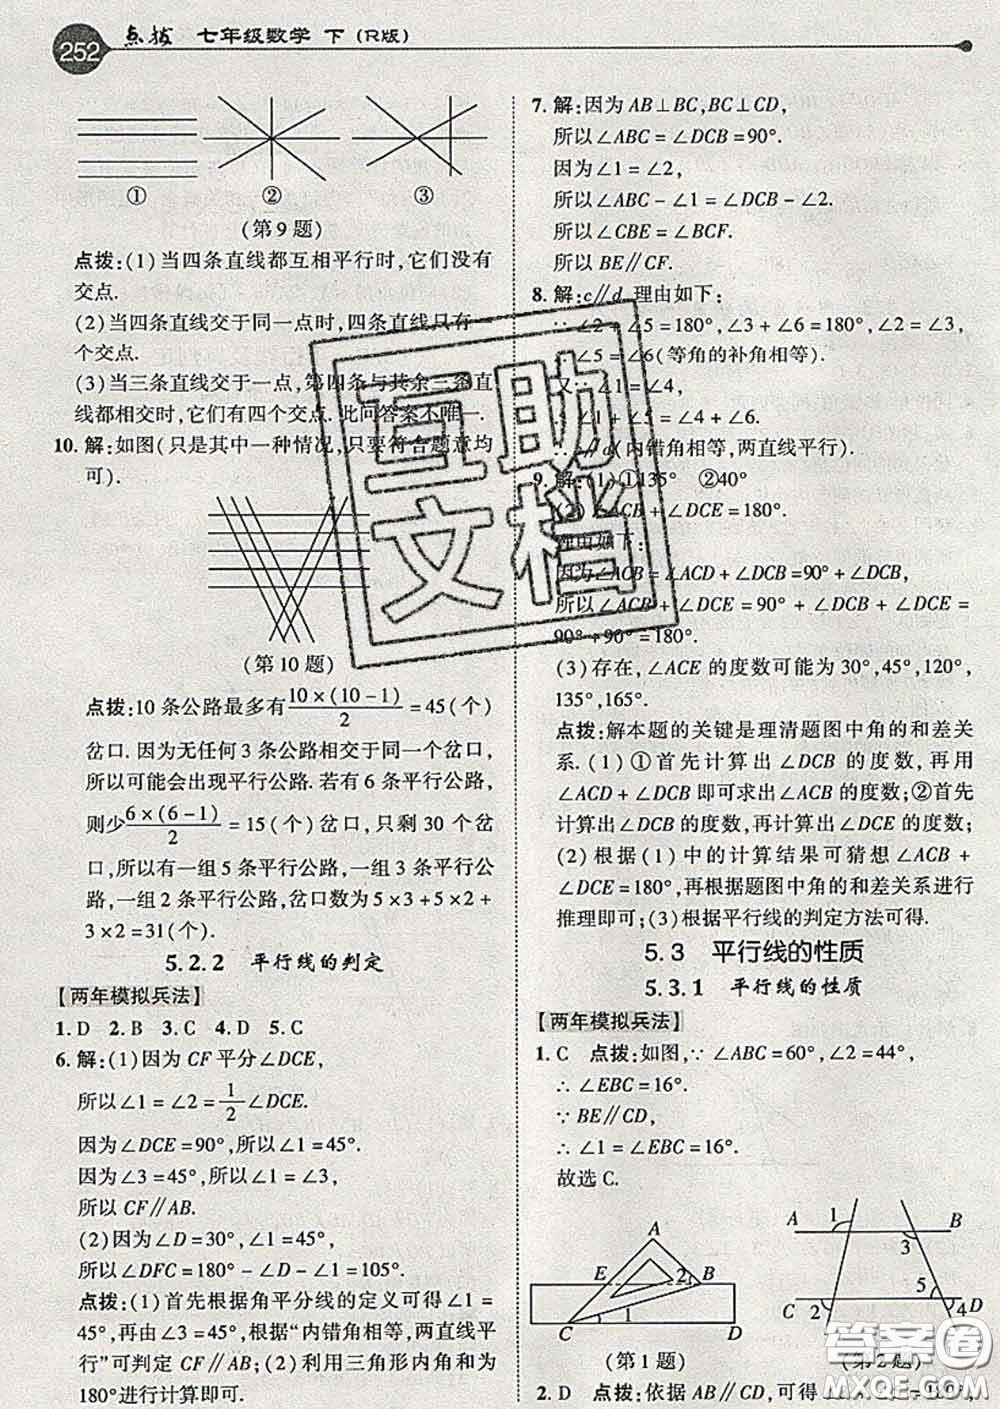 252 点拨 七年级数学 下(R版)
① ② ③
(第9题)
点拨:(1)当四条直线都互相平行时,它们没有
交点.
(2)当四条直线交于同一点时,四条直线只有一
个交点.
(3)当三条直线交于一点,第四条与其余三条直
线都相交时,它们有四个交点.此问答案不唯一.
10.解:如图(只是其中一种情况,只要符合题意均
可).
(第10题)
点拨:10条公路最多有10×(10-1)/2=45(个)
岔口.因为无任何3条公路相交于同一个岔口,
所以可能会出现平行公路.若有6条平行公路,
则少6×(6-1)/2=15(个)岔口,只剩30个岔
口,所以有一组5条平行公路,一组3条平行公
路,一组2条平行公路,岔口数为5×3+5×2+
3×2=31(个).
5.2.2 平行线的判定
【两年模拟兵法】
1.D 2.B 3.C 4.D 5.C
6.解:(1)因为CF平分∠DCE,
所以∠1=∠2=1/2∠DCE.
因为∠DCE=90°,所以∠1=45°.
因为∠3=45°,所以∠1=∠3.
所以CF∥AB.
(2)因为∠D=30°,∠1=45°,
所以∠DFC=180°-∠D-∠1=105°.
点拨:(1)首先根据角平分线的定义可得∠1=
45°,再由∠3=45°,根据“内错角相等,两直线平
行”可判定CF∥AB;(2)利用三角形内角和为
180°进行计算即可.
7.解:因为AB⊥BC,BC⊥CD,
所以∠ABC=∠DCB=90°.
因为∠1=∠2,
所以∠ABC-∠1=∠DCB-∠2.
所以∠CBE=∠BCF.
所以BE∥CF.
8.解:c∥d.理由如下:
∵∠2+∠5=180°,∠3+∠6=180°,∠2=∠3,
∴∠5=∠6(等角的补角相等).
又∵∠1=∠4,
∴∠1+∠5=∠4+∠6.
∴c∥d(内错角相等,两直线平行).
9.解:(1)①135° ②40°
(2)∠ACB+∠DCE=180°.
理由如下:
因为∠ACB=∠ACD+∠DCB=90°+∠DCB,
所以∠ACB+∠DCE=90°+∠DCB+∠DCE=
90°+90°=180°.
(3)存在,∠ACE的度数可能为30°,45°,120°,
135°,165°.
点拨:解本题的关键是理清题图中角的和差关
系.(1)①首先计算出∠DCB的度数,再用
∠ACD+∠DCB即可求出∠ACB的度数;②首先
计算出∠DCB的度数,再计算出∠DCE的度数;
(2)根据(1)中的计算结果可猜想∠ACB+
∠DCE=180°,再根据题图中角的和差关系进行
推理即可;(3)根据平行线的判定方法可得.
5.3 平行线的性质
5.3.1 平行线的性质
【两年模拟兵法】
1.C 点拨:如图,∵∠ABC=60°,∠2=44°,
∴∠EBC=16°.
∵BE∥CD,
∴∠1=∠EBC=16°.
故选C.
A E 2 B C 1 D
A 1 B 3 5 C 2 4 D
(第1题) (第2题)
2.D 点拨:依据AB∥CD,可得
互助
文档
答案圈
MXQE.COM